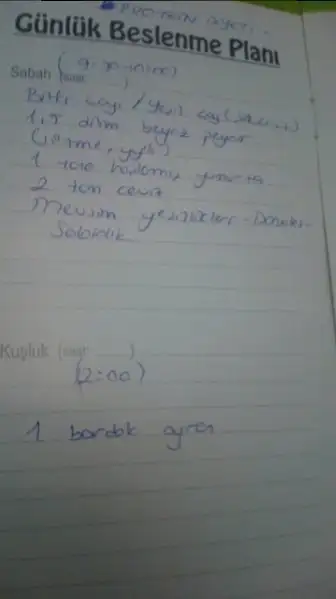 PROTEİN DİYETİ
Günlük Beslenme Planı
Sabah (saat: )
Bitki çayı / Yeşil çay
1,5 dilim beyaz peynir
1 tane haşlanmış yumurta
2 tam ceviz
Mevsim yeşillikler - Domates -
Salatalık
Kuşluk (saat: )
12:00)
1 bardak ayran